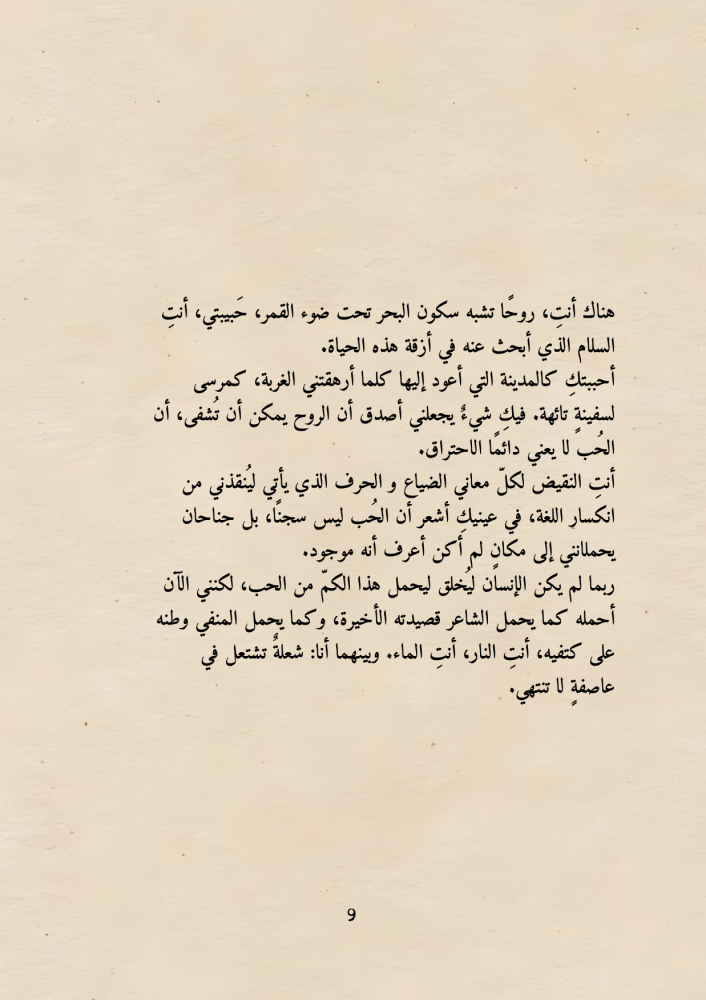 هناك أنتِ، روحًا تشبه سكون البحر تحت ضوء القمر، حَبيبتي، أنتِ
السلام الذي أبحث عنه في أزقة هذه الحياة.
أحببتكِ كالمدينة التي أعود إليها كلما أرهقتني الغربة، كمرسى
لسفينةٍ تائهة. فيكِ شيءٌ يجعلني أصدق أن الروح يمكن أن تُشفى، أن
الحُب لا يعني دائمًا الاحتراق.
أنتِ النقيض لكلّ معاني الضياع و الحرف الذي يأتي ليُنقذني من
انكسار اللغة، في عينيكِ أشعر أن الحُب ليس سجنًا، بل جناحان
يحملانني إلى مكانٍ لم أكن أعرف أنه موجود.
ربما لم يكن الإنسان ليُخلق ليحمل هذا الكمّ من الحب، لكنني الآن
أحمله كما يحمل الشاعر قصيدته الأخيرة، وكما يحمل المنفي وطنه
على كتفيه، أنتِ النار، أنتِ الماء. وبينهما أنا: شعلةٌ تشتعل في
عاصفةٍ لا تنتهي.
9